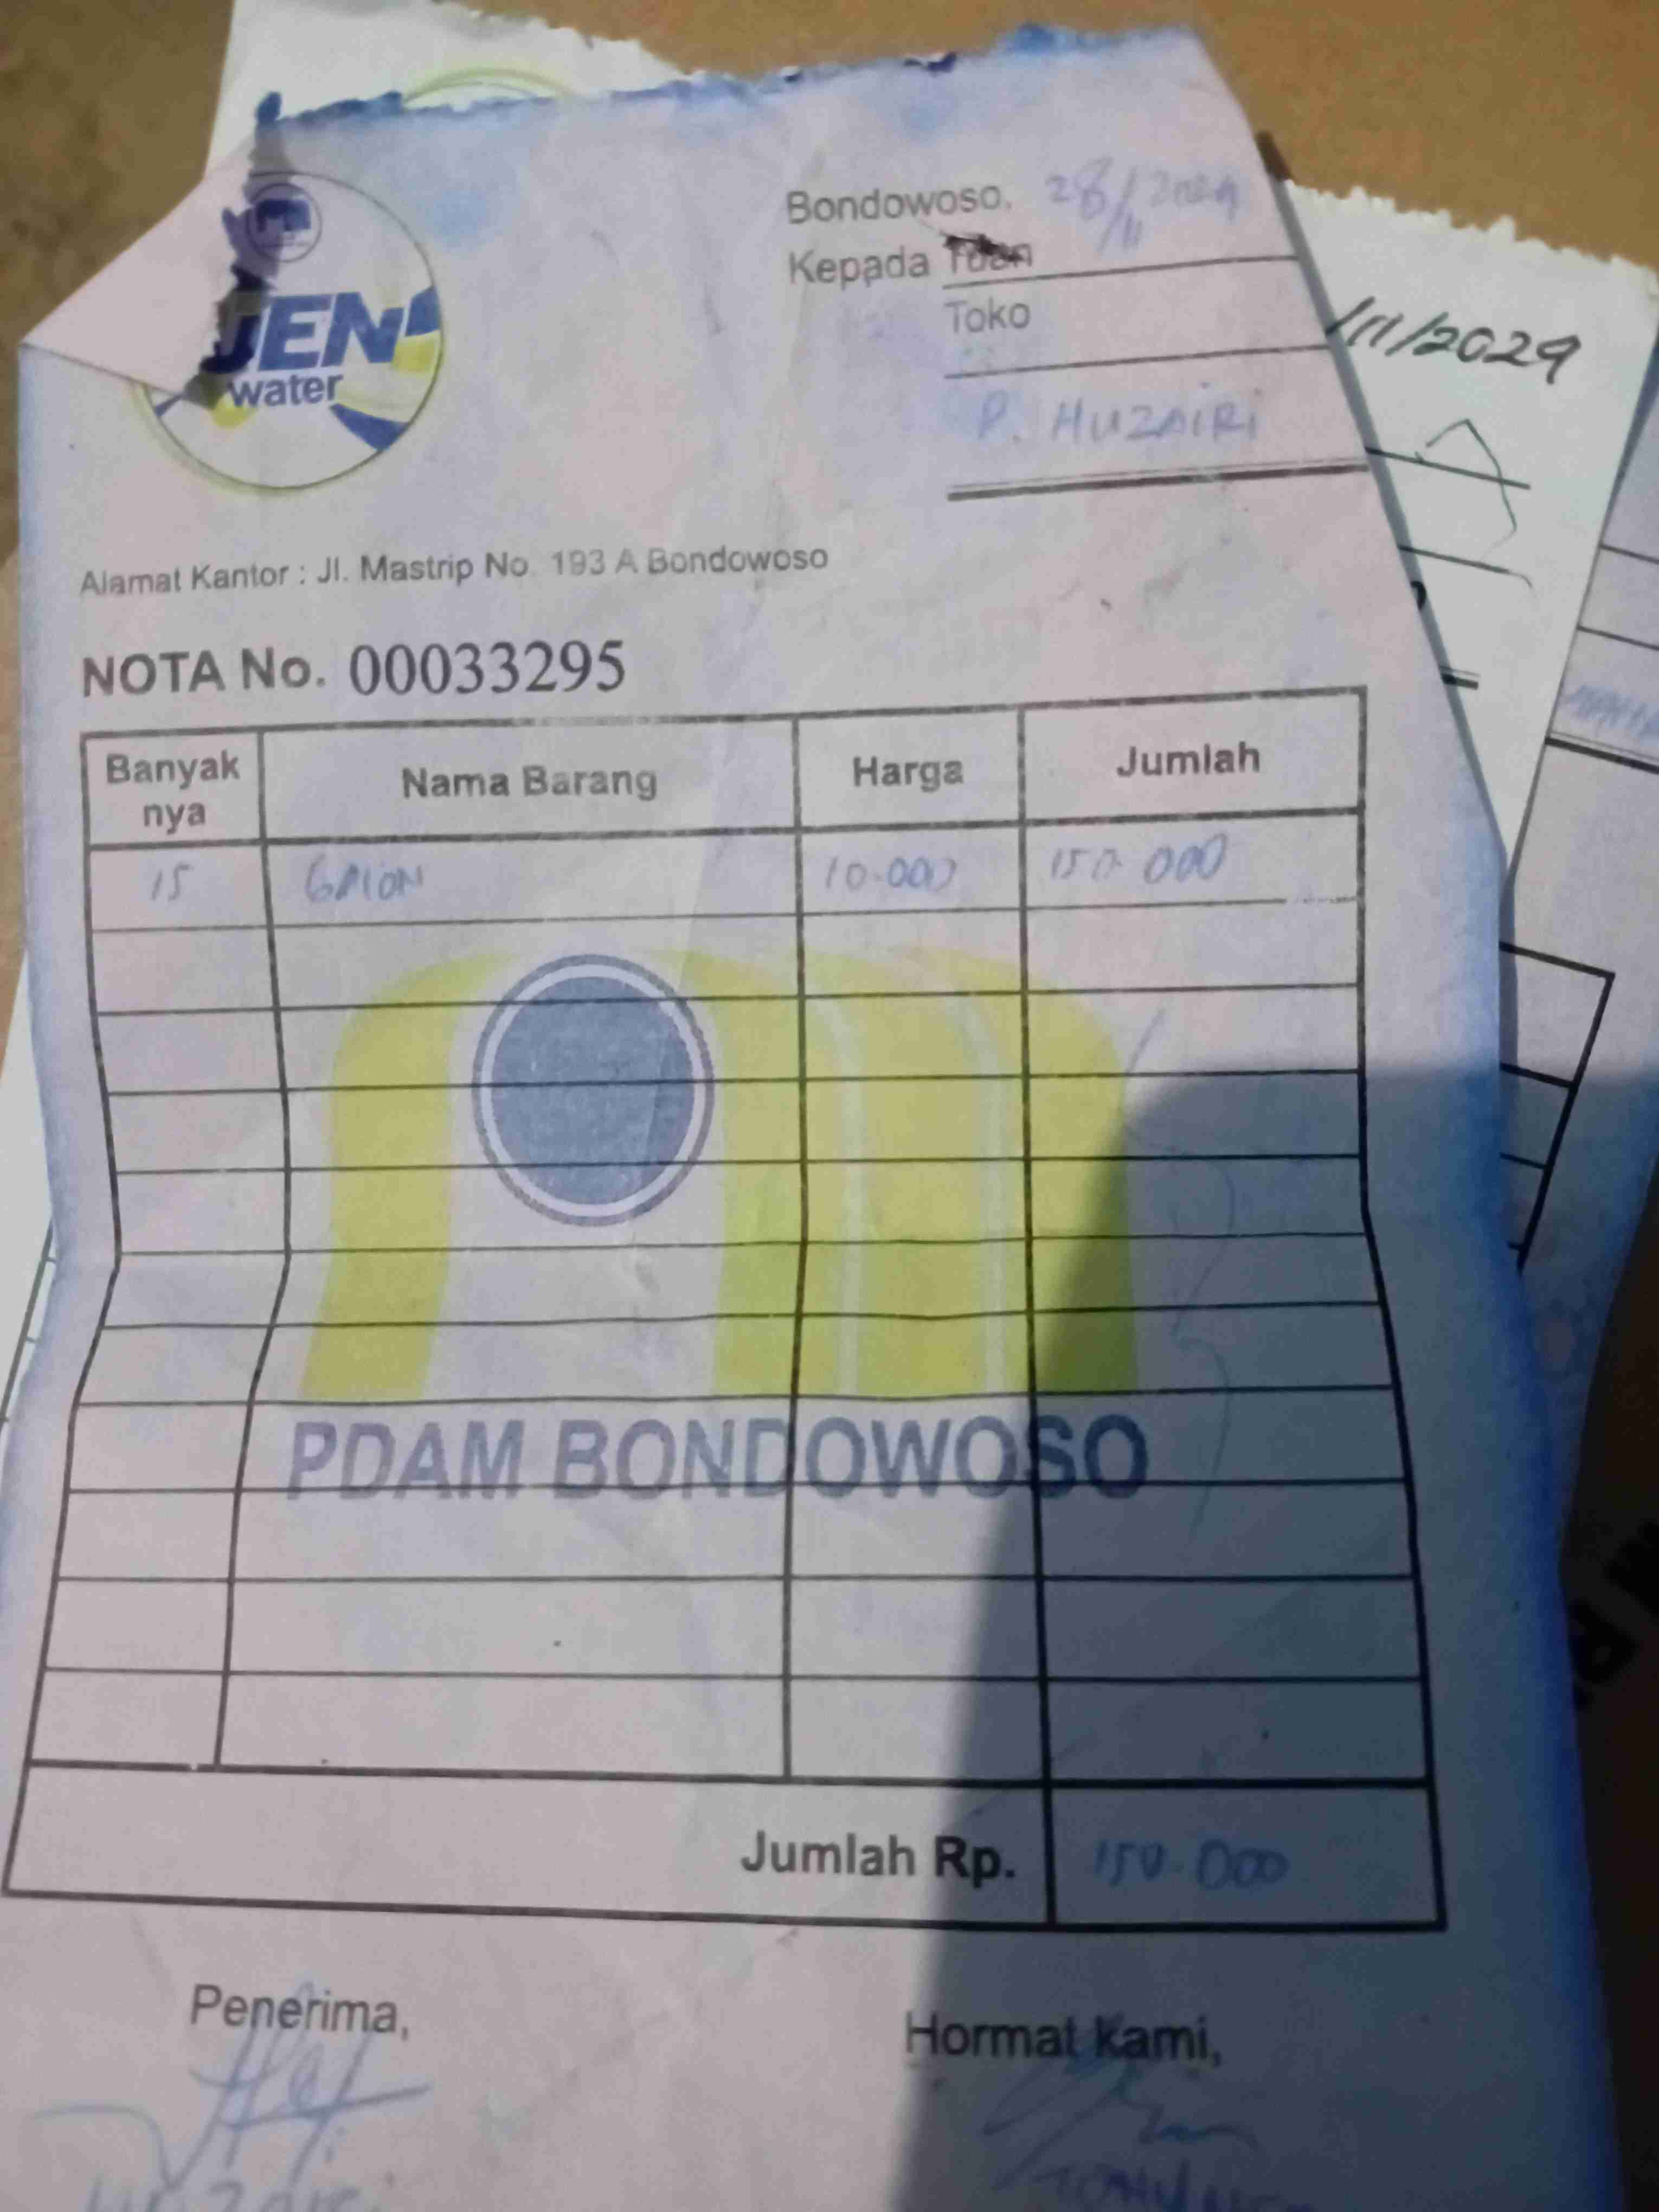 JEN
water
Bondowoso, 28/11 2024
Kepada Tuan
Toko
P. HUZAIRI
/11/2024
Alamat Kantor : Jl. Mastrip No. 193 A Bondowoso
NOTA No. 00033295
Banyak nya Nama Barang Harga Jumlah
15 GALON 10.000 150.000
PDAM BONDOWOSO
Jumlah Rp. 150.000
Penerima, Hormat kami,
HUZAIRI